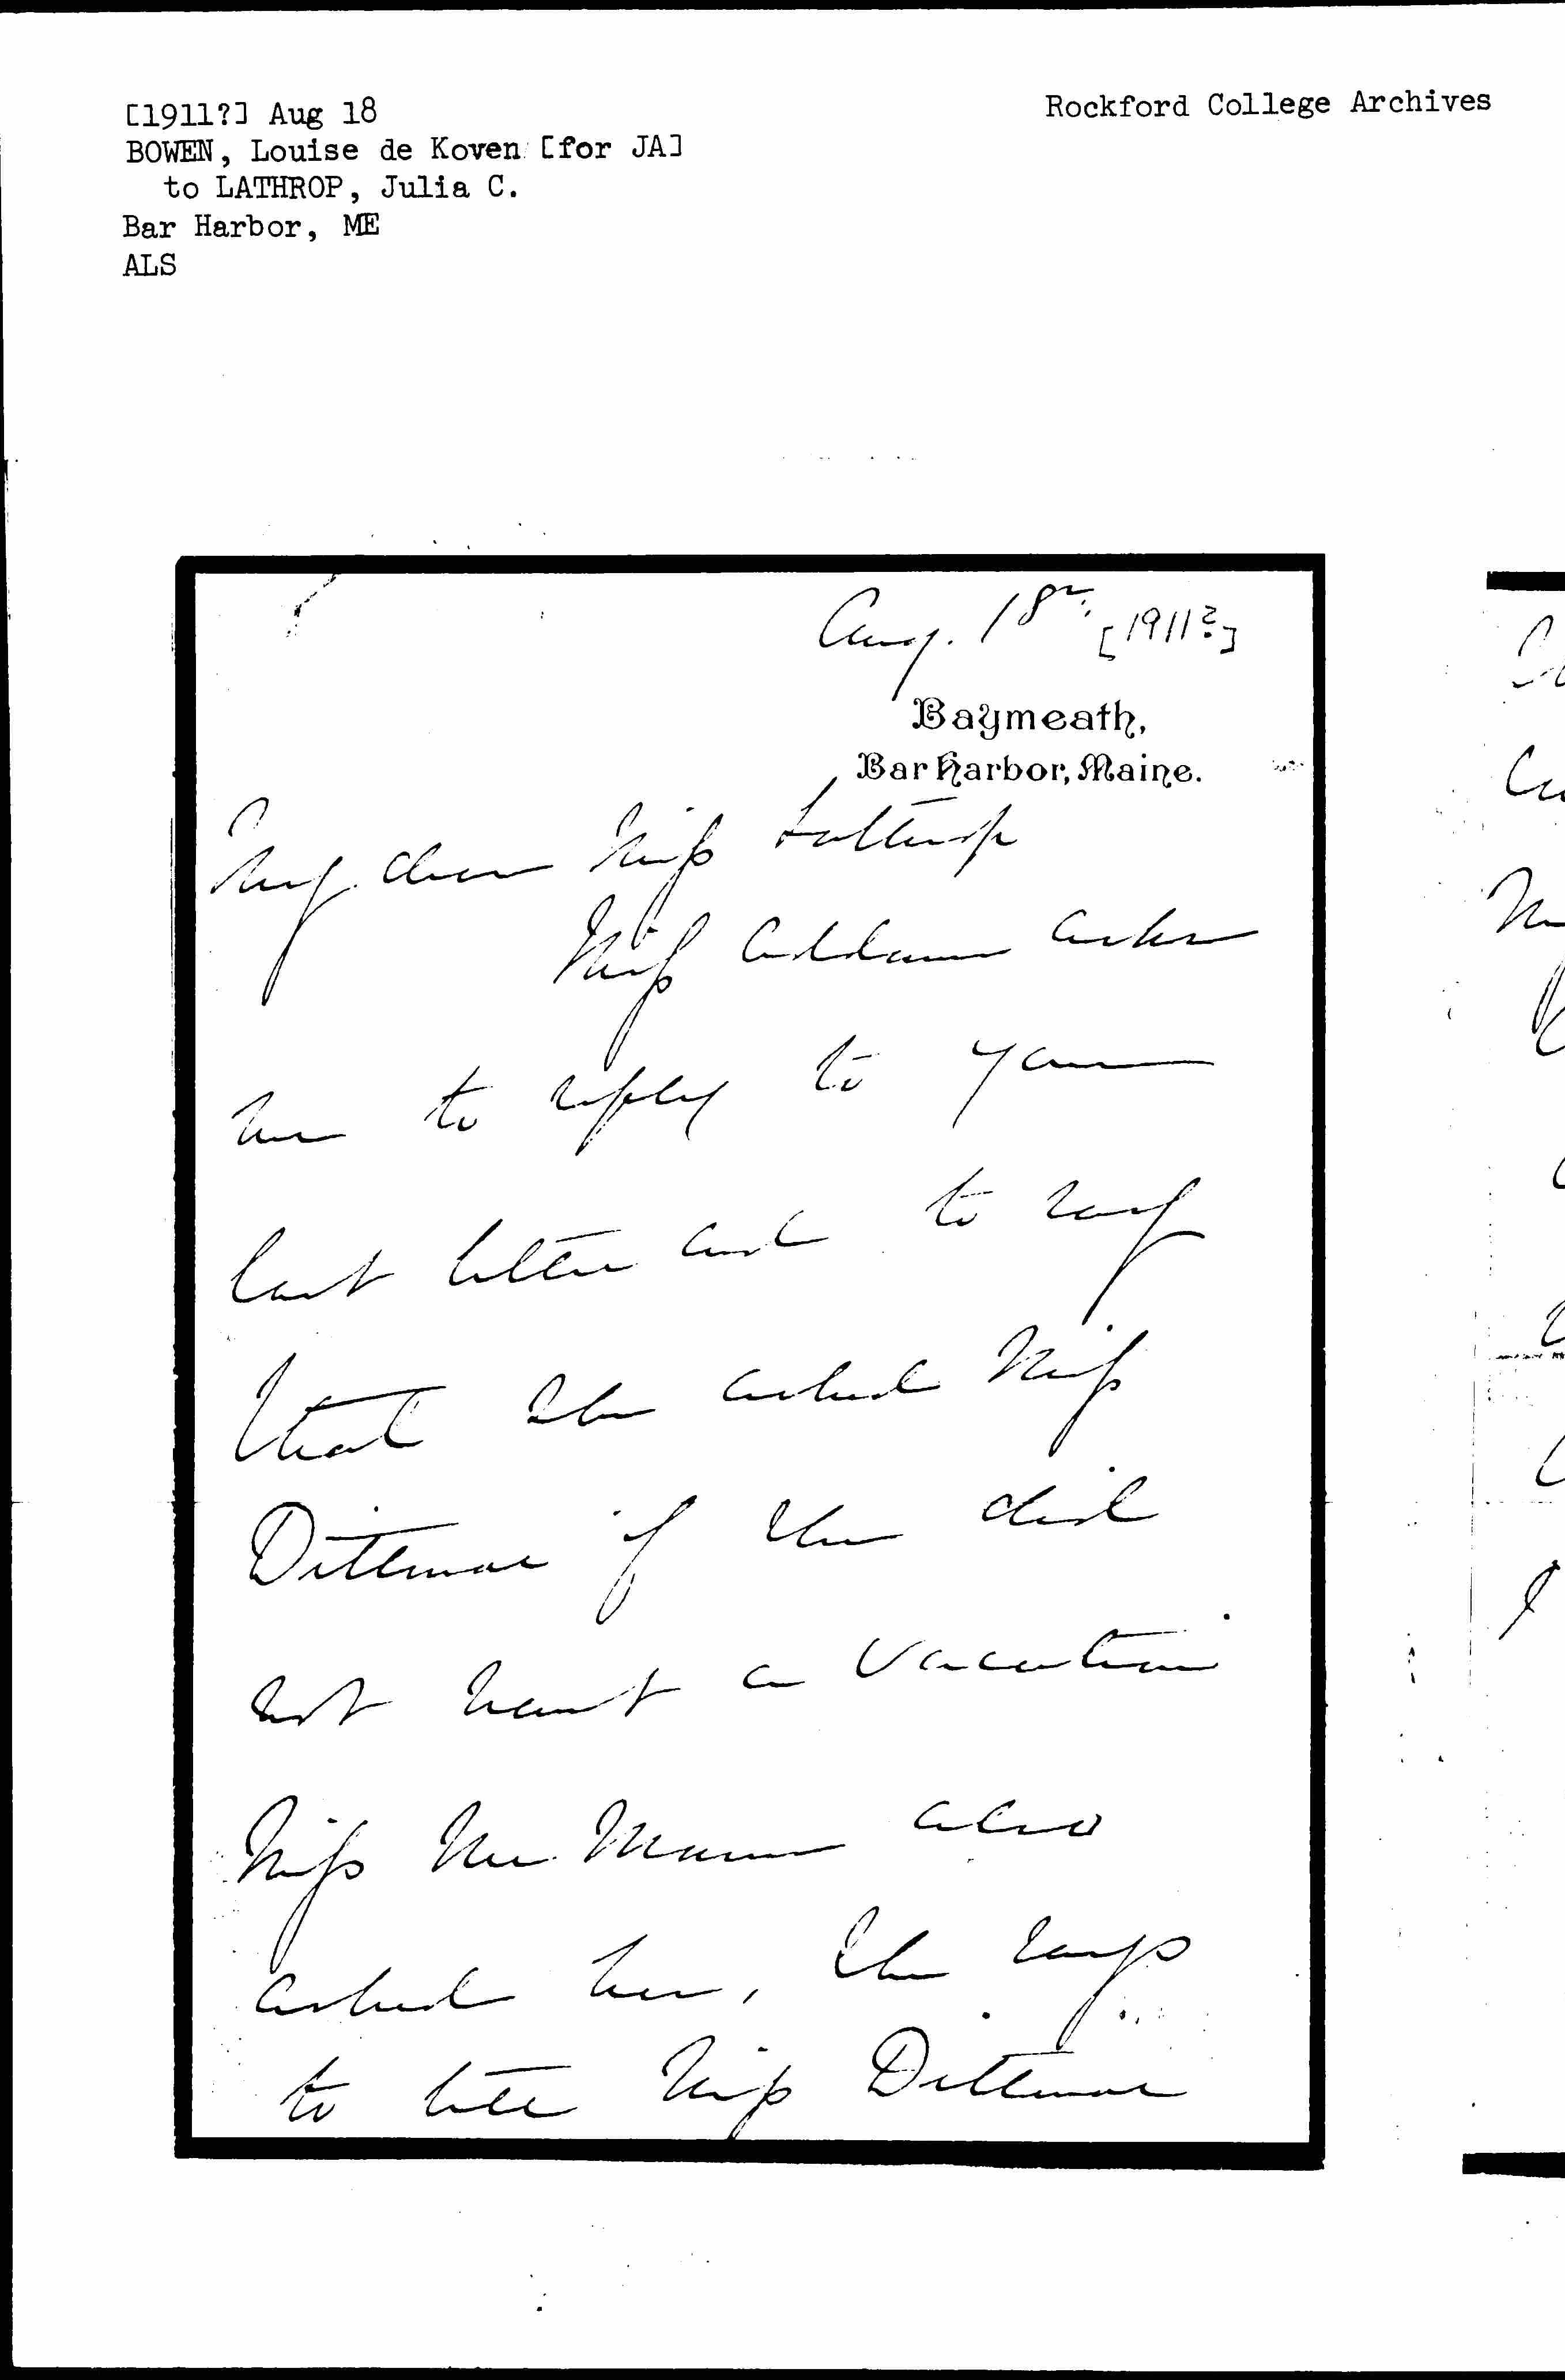 [1911?] Aug 18
BOWEN, Louise de Koven [for JA]
to LATHROP, Julia C.
Bar Harbor, ME
ALS
Rockford College Archives
Aug. 18th. [1911?]
Baymeath,
Bar Harbor, Maine.
My dear Miss Lathrop
Miss Addams asks
me to reply to your
last letter and to say
that she asked Miss
Dittmar if she did
not want a vacation
Miss
also
asked her, she says
to tell Miss Dittmar